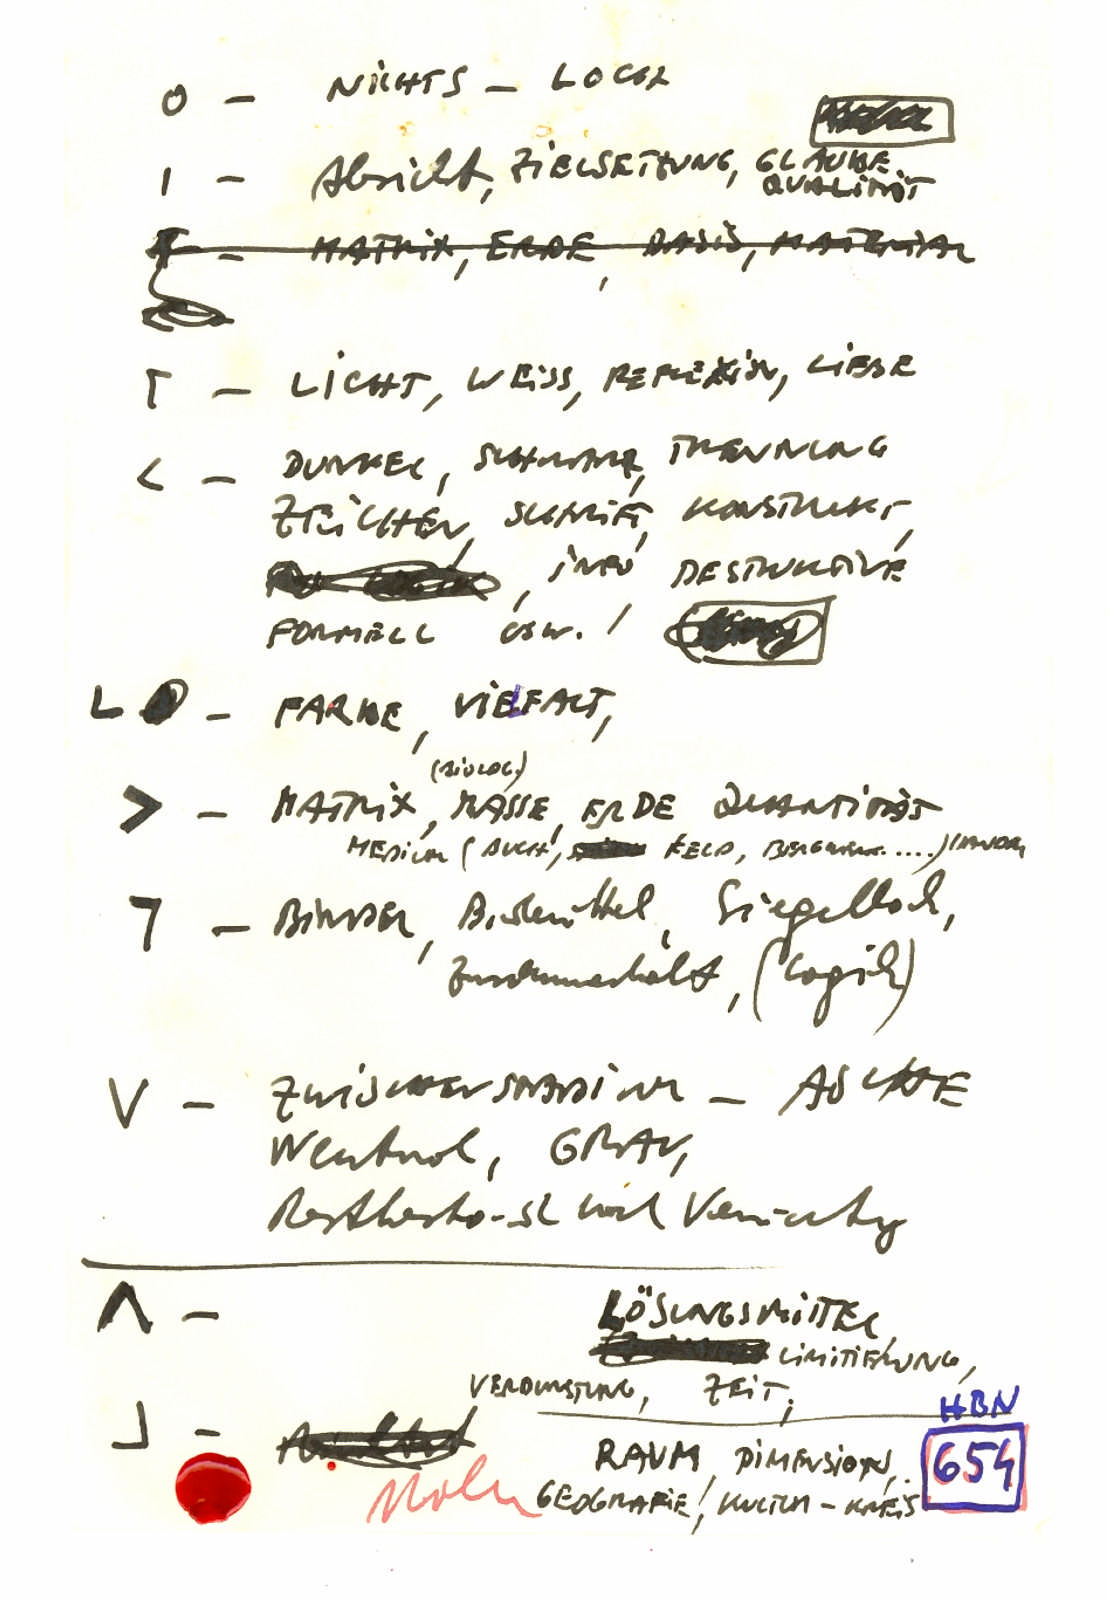 O – NICHTS – LOCH
I – Absicht, ZIELSETZUNG, GLAUBE,
QUALITÄT
MATRIX, ERDE, BASIS, MATERIAL
Γ – LICHT, WEISS, REFLEXION, LIEBE
< – DUNKEL, SCHWARZ, TRENNUNG
ZEICHEN, SCHRIFT, KONSTRUKT,
, INFO DESTRUKTIVE
FORMELL USW. /
L – FARBE, VIELFALT,
(BIOLOG.)
> – MATRIX, MASSE, ERDE QUANTITÄT
MEDIUM (BUCH, FELD, BERGWERK.....)
7 – BINDER, Bindemittel, Siegellack,
Zusammenhalt, (Logik)
V – ZWISCHENSTADIUM – ASCHE
Neutral, GRAU,
nach
Λ – LÖSUNGSMITTEL
LIMITIERUNG,
VERDUNSTUNG, ZEIT,
HBN
⅃ – RAUM, DIMENSION, 654
GEOGRAFIE, KULTUR-KREIS